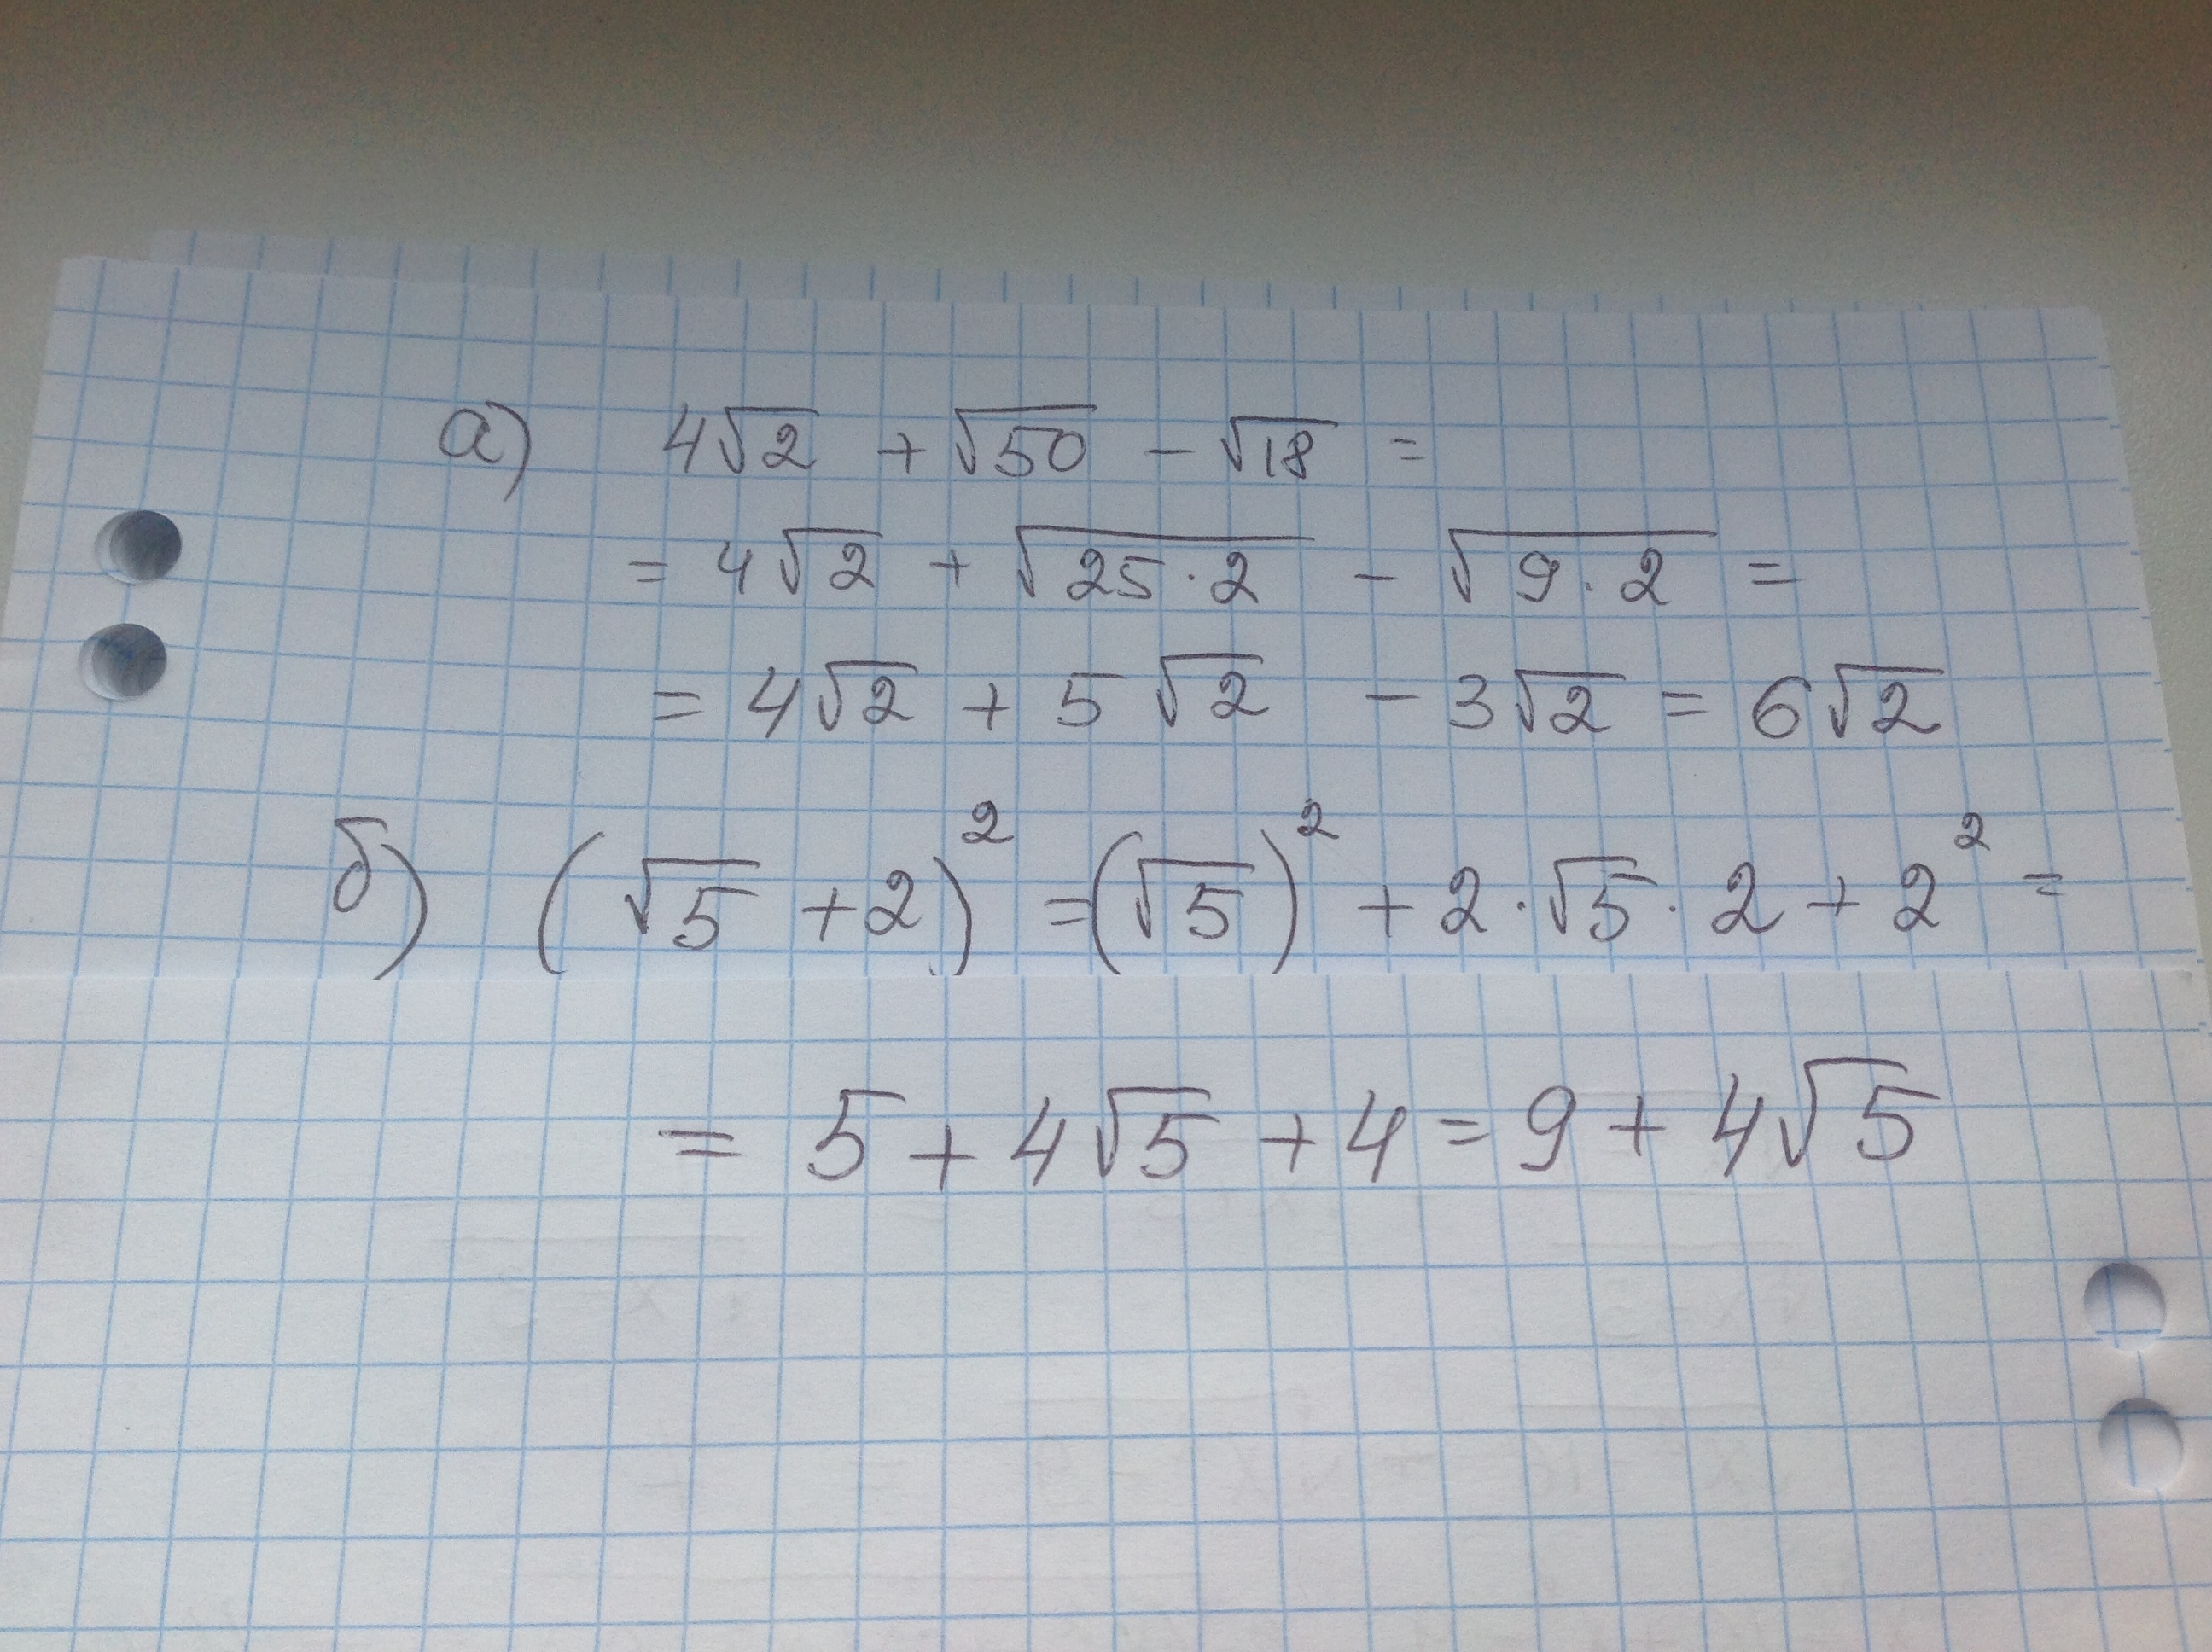 а) 4√2 + √50 - √18 =
= 4√2 + √25·2 - √9·2 =
= 4√2 + 5√2 - 3√2 = 6√2
б) (√5 + 2)² = (√5)² + 2·√5·2 + 2² =
= 5 + 4√5 + 4 = 9 + 4√5